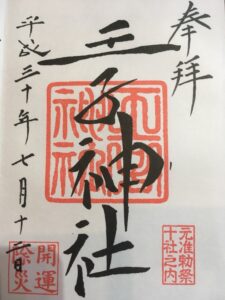 奉拝
元准勅祭
十社之内
王子神社
王子
神社
平成三十年七月十二日
開運
除災